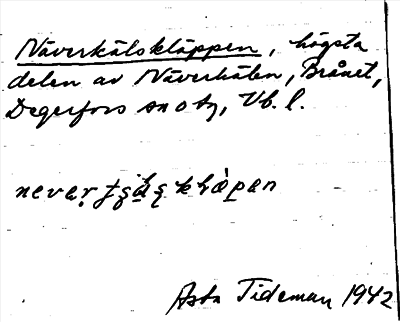 Näverkälskläppen, högsta
delen av Näverkälen, Brånet,
Degerfors sn o tg, Vb. l.
Asta Tideman 1942